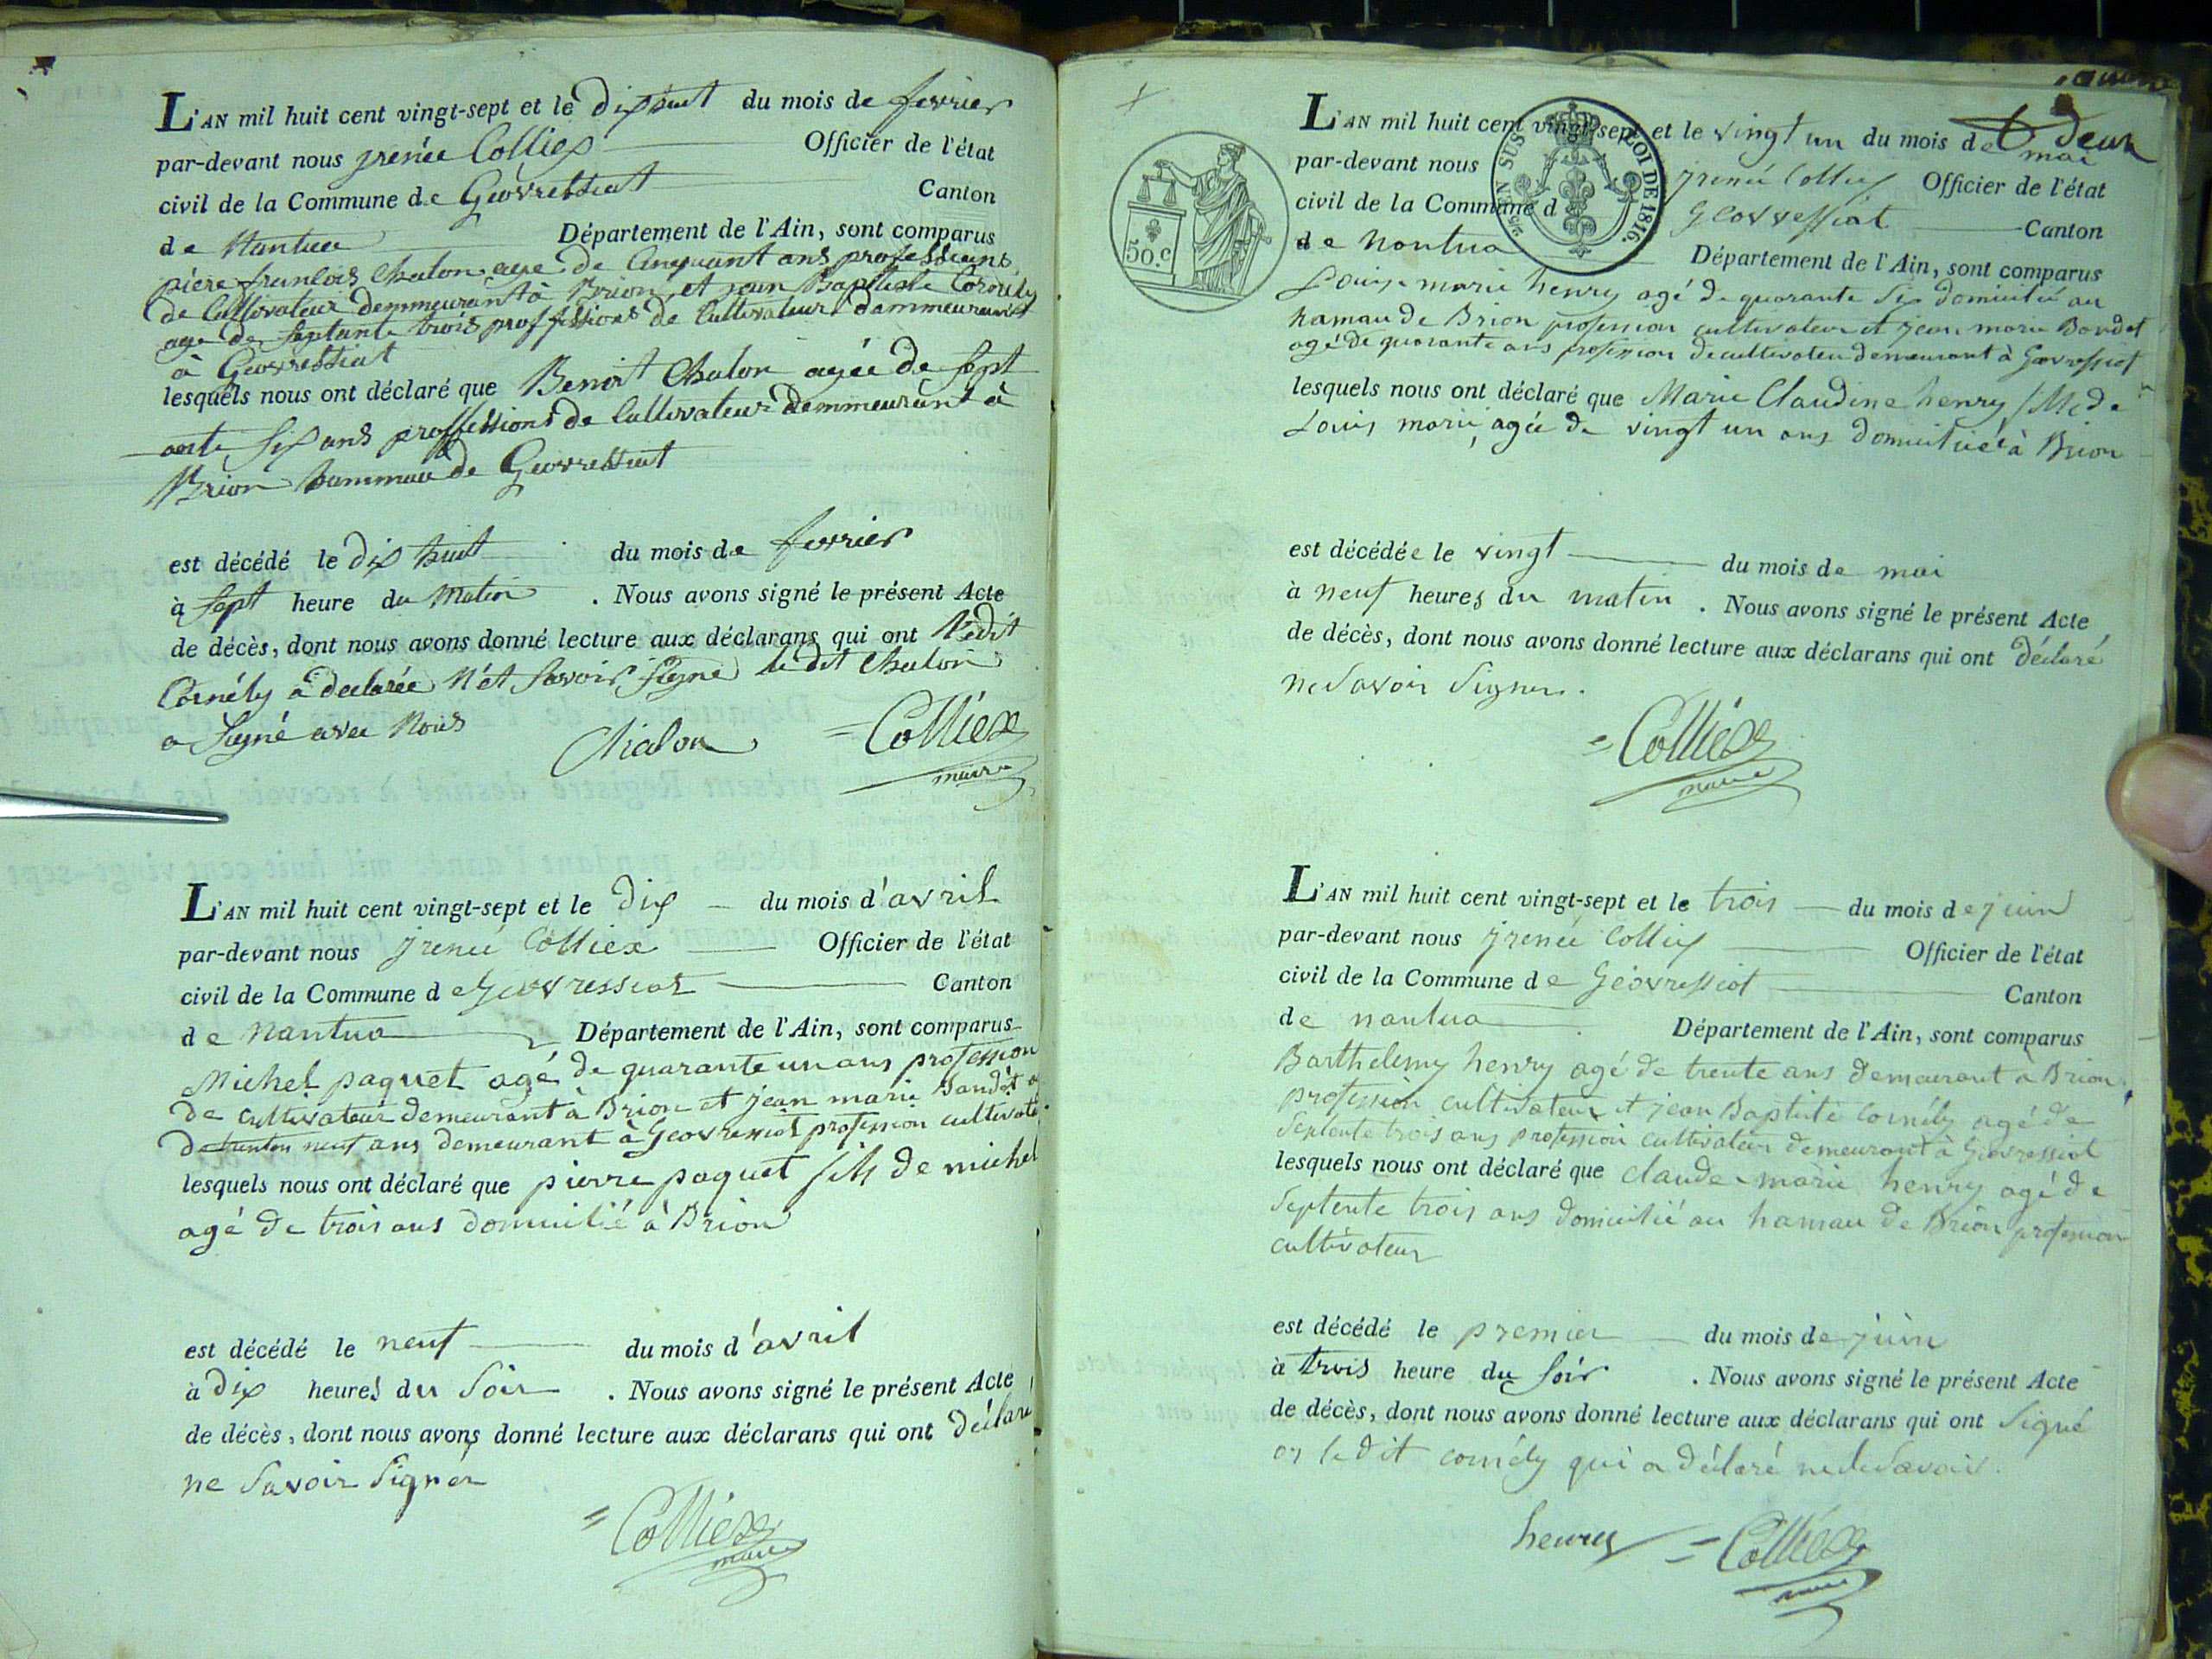 L'AN mil huit cent vingt-sept et le dix huit du mois de fevrier
par-devant nous jrenée Colliex Officier de l'état
civil de la Commune de Geovressiat Canton
de Nantua Département de l'Ain, sont comparus
pière francois Chalon age de Cinquant ans professions
de Cultivateur demmeurant à Brion et jean Baptiste Cornély
age de septante trois proffessions de Cultivateur demmeurant
à Geovressiat
lesquels nous ont déclaré que Benoit Chalon agée de sept
ante six ans proffessions de Cultivateur demmeurant à
Brion hammau de Geovressiat
est décédé le dix huit du mois de fevrier
à sept heure du Matin . Nous avons signé le présent Acte
de décès, dont nous avons donné lecture aux déclarans qui ont
Cornély à declarée savoir signé le dit Chalon
a signé avec Nous
Chalon = Colliex
maire
L'AN mil huit cent vingt-sept et le dix du mois d'avril
par-devant nous jrenée Colliex Officier de l'état
civil de la Commune de Geovressiat Canton
de nantua Département de l'Ain, sont comparus
Michel paquet agé de quarante un ans profession
de cultivateur demeurant à Brion et jean marie
de neuf ans demeurant à Geovressiat profession cultivate
lesquels nous ont déclaré que pierre paquet fils de michel
agé de trois ans domicilié à Brion
est décédé le neuf du mois d'avril
à dix heures du soir . Nous avons signé le présent Acte
de décès, dont nous avons donné lecture aux déclarans qui ont déclaré
ne savoir signer
= Colliex
maire
deux
L'AN mil huit cent vingt-sept et le vingt un du mois de mai
par-devant nous jrenée Colliex Officier de l'état
civil de la Commune de Geovressiat Canton
de nantua Département de l'Ain, sont comparus
LOI DE 1816.
50.c
Louis marie henry agé de quarante six domicilié au
hamau de Brion profession cultivateur et jean marie
agé de quarante ans profession de cultivateur demeurant à Geovressiat
lesquels nous ont déclaré que Marie Claudine henry de
Louis marie, agée de vingt un ans domiciliée à Brion
est décédée le vingt du mois de mai
à neuf heures du matin . Nous avons signé le présent Acte
de décès, dont nous avons donné lecture aux déclarans qui ont déclaré
ne savoir signer.
= Colliex
maire
L'AN mil huit cent vingt-sept et le trois du mois de juin
par-devant nous jrenée Colliex Officier de l'état
civil de la Commune de Géovressiat Canton
de nantua Département de l'Ain, sont comparus
Barthelemy henry agé de trente ans demeurant à Brion
profession cultivateur et jean Baptiste Cornély agé de
septente trois ans profession cultivateur demeurant à Geovressiat
lesquels nous ont déclaré que claude marie henry agé de
septente trois ans domicilié au hamau de Brion profession
cultivateur
est décédé le premier du mois de juin
à trois heure du soir . Nous avons signé le présent Acte
de décès, dont nous avons donné lecture aux déclarans qui ont signé
le dit cornély qui a déclaré ne le savoir.
henry = Colliex
maire